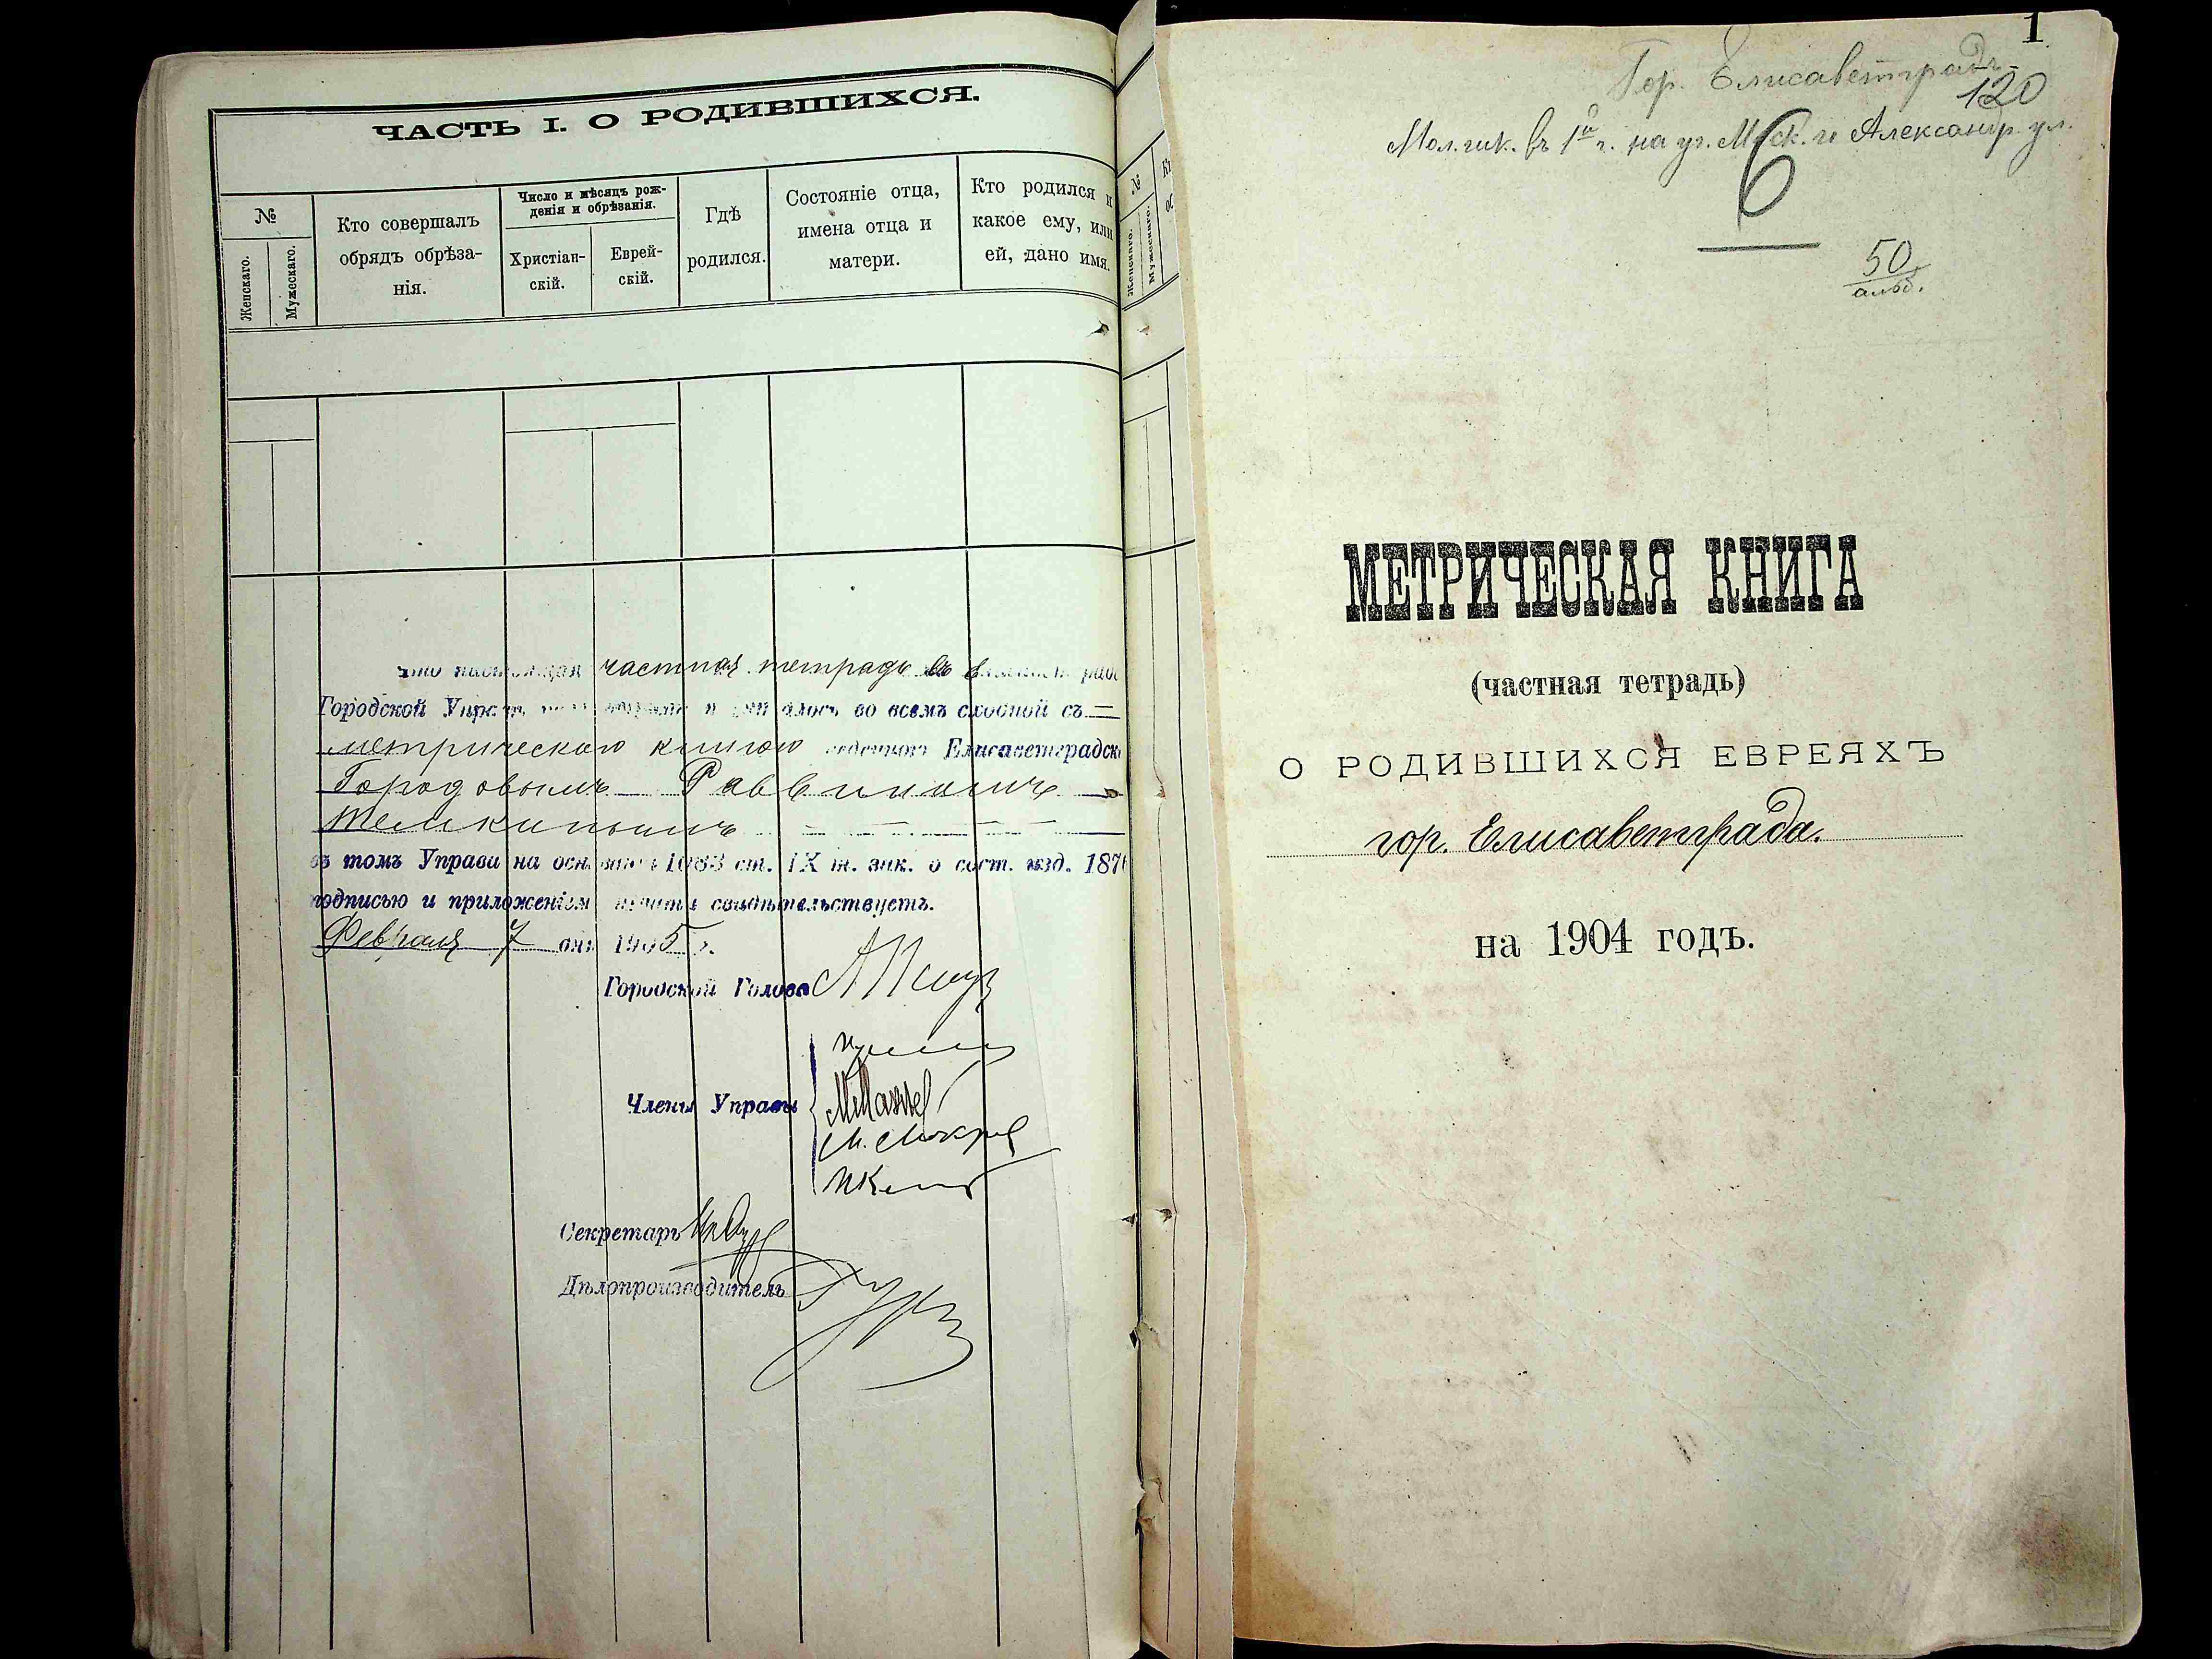 ЧАСТЬ I. О РОДИВШИХСЯ.
№
Женскаго.
Мужескаго.
Кто совершалъ
обрядъ обрѣза-
нія.
Число и мѣсяцъ рож-
денія и обрѣзанія.
Христіан-
скій.
Еврей-
скій.
Гдѣ
родился.
Состояніе отца,
имена отца и
матери.
Кто родился и
какое ему, или
ей, дано имя.
№
Женскаго.
Мужескаго.
Что настоящая частная тетрадь въ
Городской Управ во всемъ сходной съ
метрическою книгою веденною Елисаветградск
Городовымъ Раввиномъ
Темкинымъ
въ томъ Управа на основаніи 1083 ст. IX т. зак. о сост. изд. 1876
подписью и приложеніемъ печати свидѣтельствуетъ.
Февраля 7 дня 1905 г.
Городской Голова
Члены Управы
М. Мокр
Секретарь
Дѣлопроизводитель
1
Гор. Елисаветградъ
120
въ 1й г. на уг. Моск. и Александр. ул.
6
50
МЕТРИЧЕСКАЯ КНИГА
(частная тетрадь)
О РОДИВШИХСЯ ЕВРЕЯХЪ
гор. Елисаветграда.
на 1904 годъ.